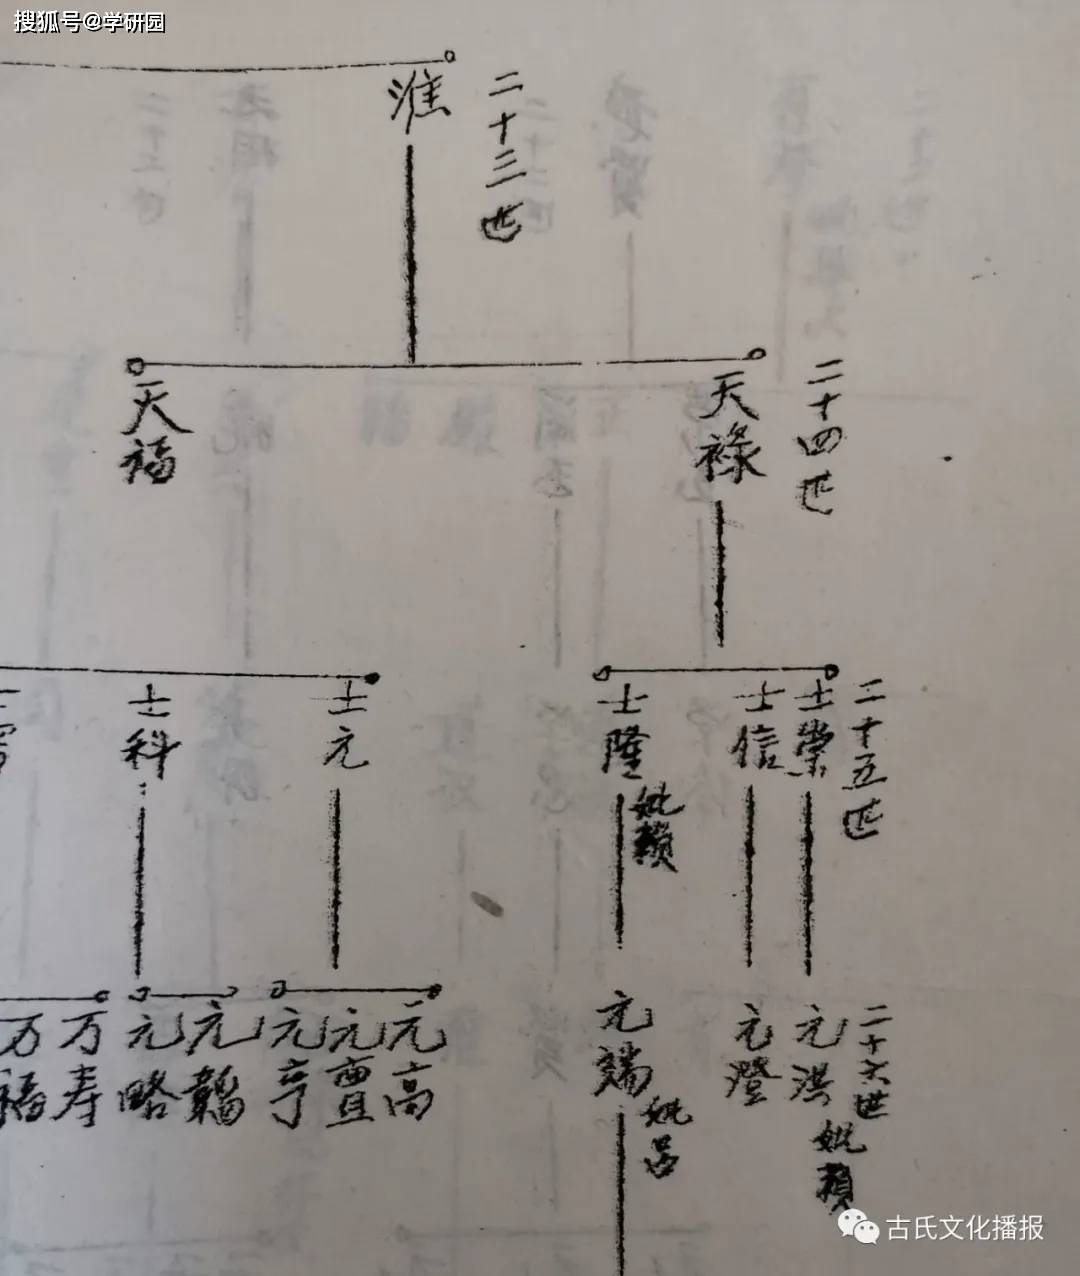 搜狐号@学研园
二十三世
淮
二十四世
天禄
天福
二十五世
士崇
士信
士隆
妣赖
士元
士科
士
二十六世
元洪
妣赖
元澄
元端
妣吕
元高
元亶
元亨
元韜
元略
万寿
万福
古氏文化播报